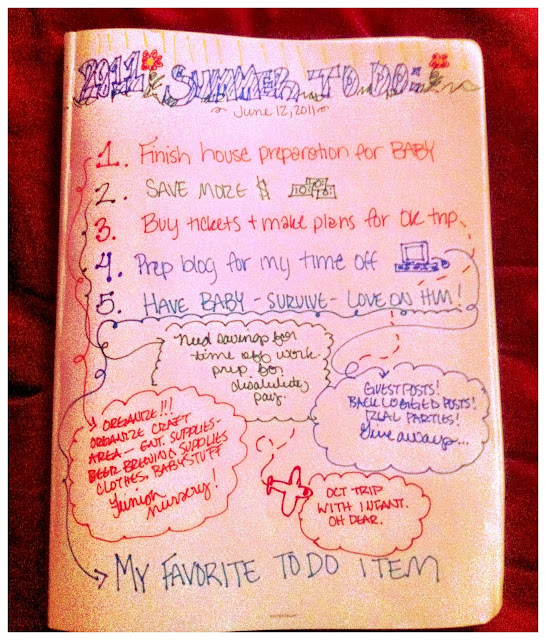 2011 SUMMER TO DO:
June 12, 2011
1. Finish house preparation for BABY
2. SAVE MORE $
3. Buy tickets + make plans for OK trip
4. Prep blog for my time off
5. HAVE BABY - SURVIVE - LOVE ON HIM!
Need savings for
time off work
prep for
disability
pay.
GUEST POSTS!
BACK LOGGED POSTS!
PARTIES!
Give aways...
ORGANIZE!!!
ORGANIZE CRAFT
AREA - ENT. SUPPLIES -
BEER BREWING SUPPLIES
CLOTHES, BABY STUFF
Finish
nursery!
OCT TRIP
WITH INFANT.
OH DEAR.
MY FAVORITE TO DO ITEM